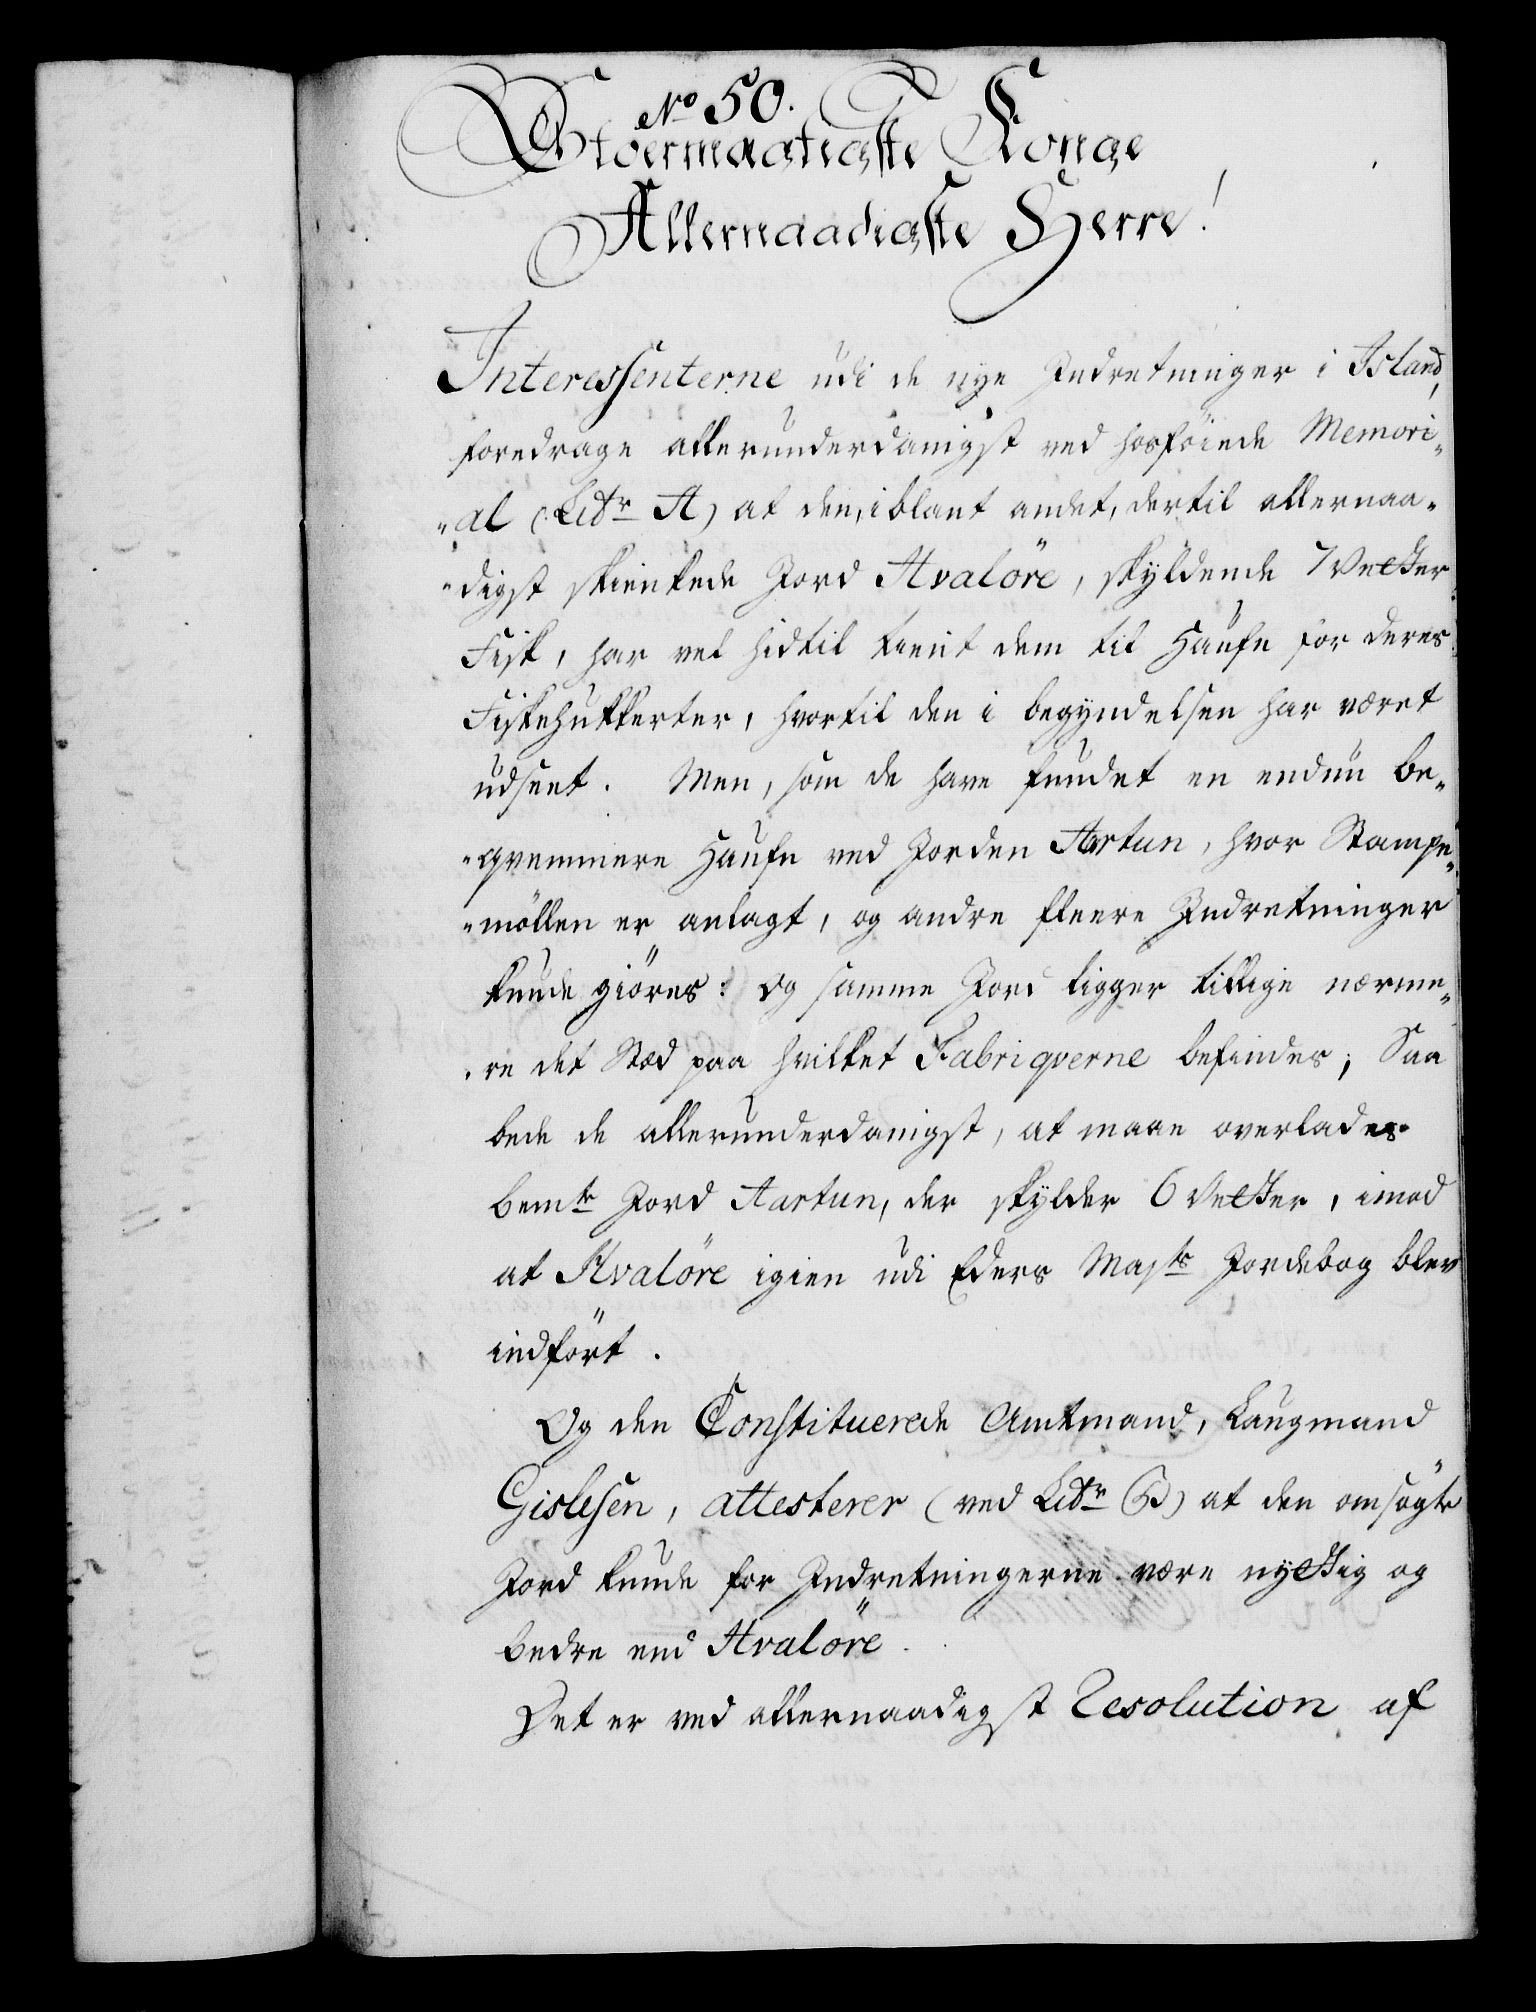 No 50.
Stoermægtigste Konge
Allernaadigste Herre!
Interessenterne udi de nye Indretninger i Island,
foredrage allerunderdanigst ved hosföiede Memori„
„al (: Litr A) at den, iblant andet, dertil allernaa„
„digst skienkede Jord Hvalöre, skyldende 7 Vetter
Fisk, har vel hidtil tient dem til Haufn for deres
Fiskehukkerter, hvortil den i begyndelsen har været
udseet. Men, som de have fundet en endnu be„
„qvemmere Haufn ved Jorden Aartun, hvor Stampe„
„möllen er anlagt, og andre fleere Indretninger
kunde giöres: Og samme Jord ligger tillige nærme„
„re det Stæd paa hvilket Fabriqverne befindes; Saa
bede de allerunderdanigst, at maae overlades
bemte Jord Aartun, der skylder 6 Vetter, imod
at Hvalöre igien udi Eders Majts Jordebog blev
indfört.
Og den Constituerede Amtmand, Laugmand
Gislesen, attesterer (ved Litr B) at den omsögte
Jord kunde for Indretningerne være nyttig og
bedre end Hvalöre.
Det er ved allernaadigst Resolution af